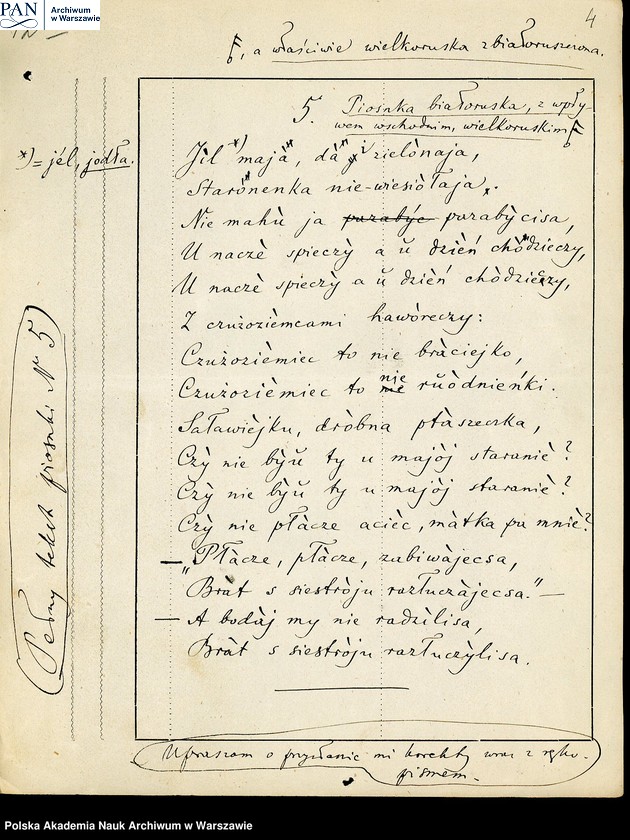 PAN Archiwum
w Warszawie
4
, a właściwie wielkoruska zbiałoruszczona.
5. Piosnka białoruska, z wpły-
wem wschodnim, wielkoruskim
*) = jél, jodła.
Jil *) majà, dà zielònaja,
Starònenka nie-wiesiòłaja.
Nie mahù ja purabýc purabỳcisa,
U naczè spieczỳ a ŭ dzièń chòdzieczy,
U naczè spieczỳ a ŭ dzièń chòdzieczy,
Z czużozièmcami hawòreczy:
Czużozièmiec to nie bràciejko,
Czużozièmiec to nie ruòdnieńki.
Saławièjku, dròbna ptàszeczka,
Czỳ nie bỳŭ ty u majòj staraniè?
Czỳ nie bỳŭ ty u majòj staraniè?
Czỳ nie płàcze acièc, màtka pa mniè?
— „Płàcze, płàcze, zabiwàjecsa,
Bràt s siestròju razłuczàjecsa." —
— A bodàj my nie radzìlisa,
Bràt s siestròju razłuczỳlisa.
(Pełny tekst piosnki Nr 5)
Upraszam o przysłanie mi korekty wraz z ręko-
pismem.
Polska Akademia Nauk Archiwum w Warszawie